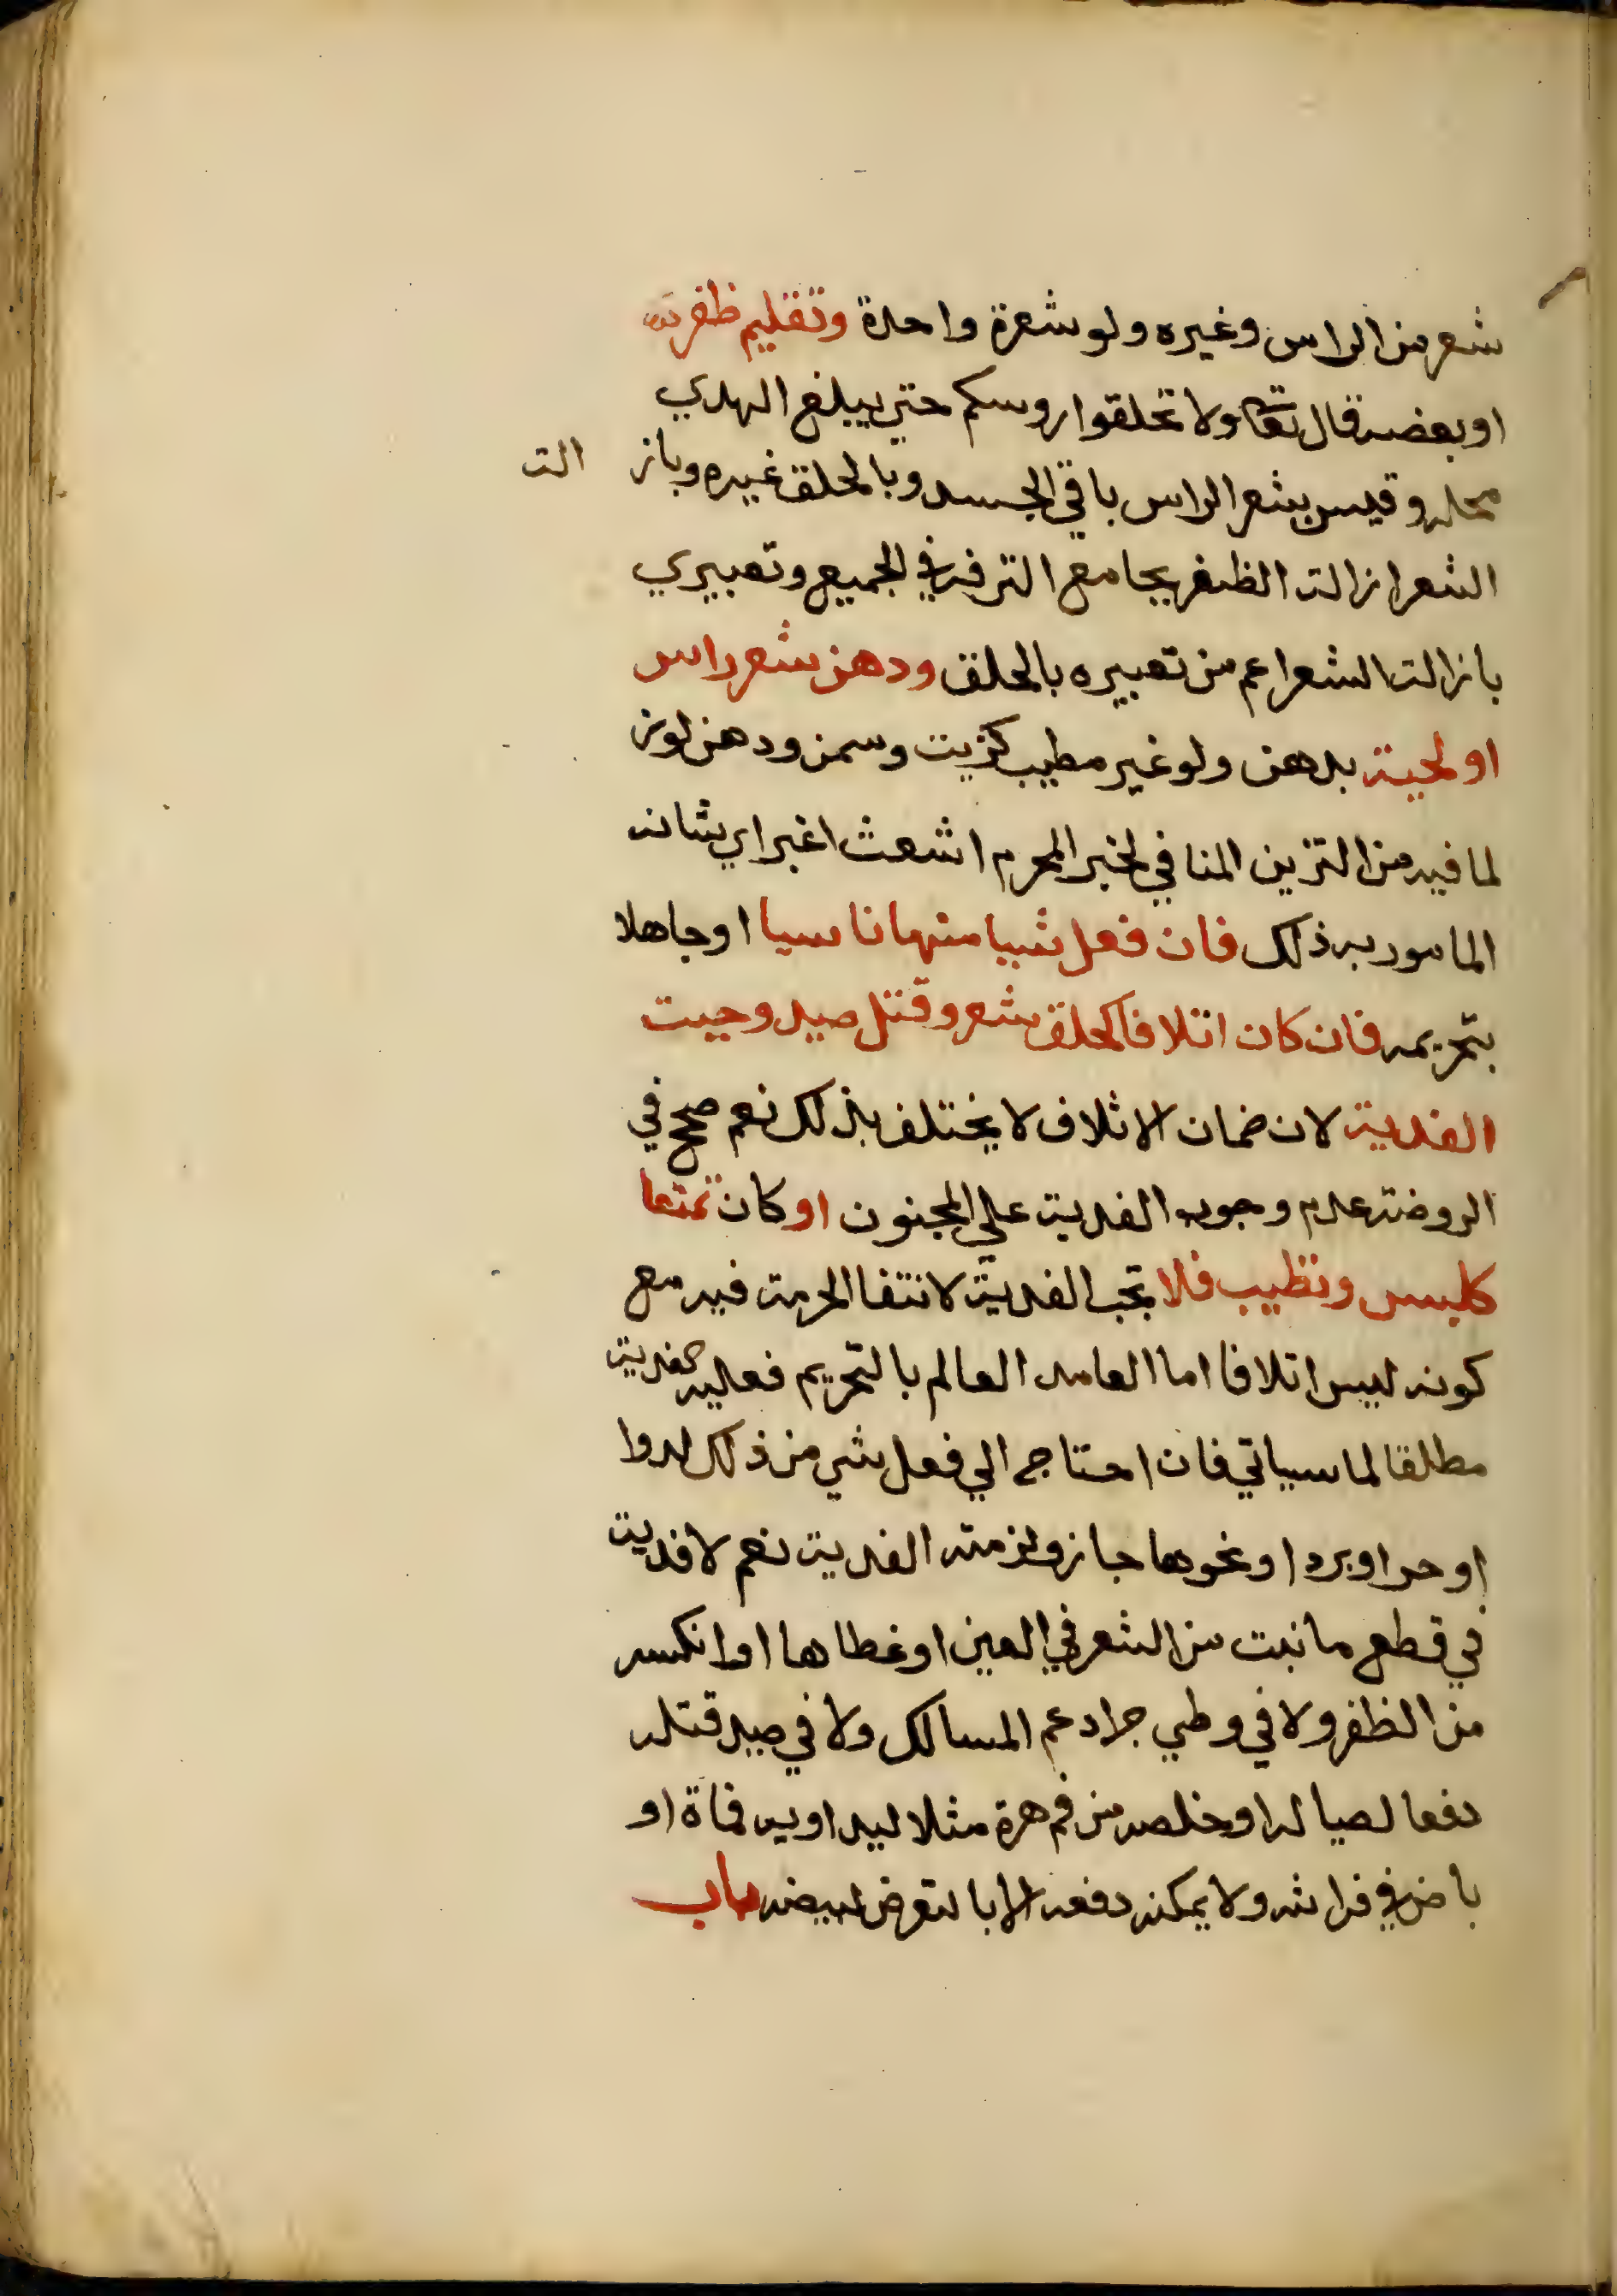 شعر من الراس وغيره ولو شعرة واحدة وتقليم ظفر منه
او بعضه قال تعا ولا تحلقوا روسكم حتي يبلغ الهدي
محله وقيس بشعر الراس باقي الجسد وبالحلق غيره وباز الة
الشعر ازالة الظفر بجامع الترفه في الجميع وتعبيري
بازالة الشعر اعم من تعبيره بالحلق ودهن شعر راس
او لحية بدهن ولو غير مطيب كزيت وسمن ودهن لوز
لما فيه من التزين المنافي لخبر المحرم اشعث اغبر اي شانه
المامور به ذلك فان فعل شيا منها ناسيا او جاهلا
بتحريمه فان كان اتلافا كحلق شعر وقتل صيد وجبت
الفدية لان ضمان الاتلاف لا يختلف بذلك نعم صحح في
الروضة عدم وجوب الفدية علي المجنون او كان تمتعا
كلبس وتطيب فلا تجب الفدية لانتفا الحرمة فيه مع
كونه ليس اتلافا اما العامد العالم بالتحريم فعليه الفدية
مطلقا لما سياتي فان احتاج الي فعل شي من ذلك لدوا
او حر او برد او نحوها جاز ولزمته الفدية نعم لا فدية
في قطع ما نبت من الشعر في العين او غطاها او انكسر
من الظفر ولا في وطي جراد عم المسالك ولا في صيد قتله
دفعا لصياله او خلصه من فم هرة مثلا ليداويه فماة او
باض في فراشه ولا يمكنه دفعه الا بالتعرض لبيضه باب